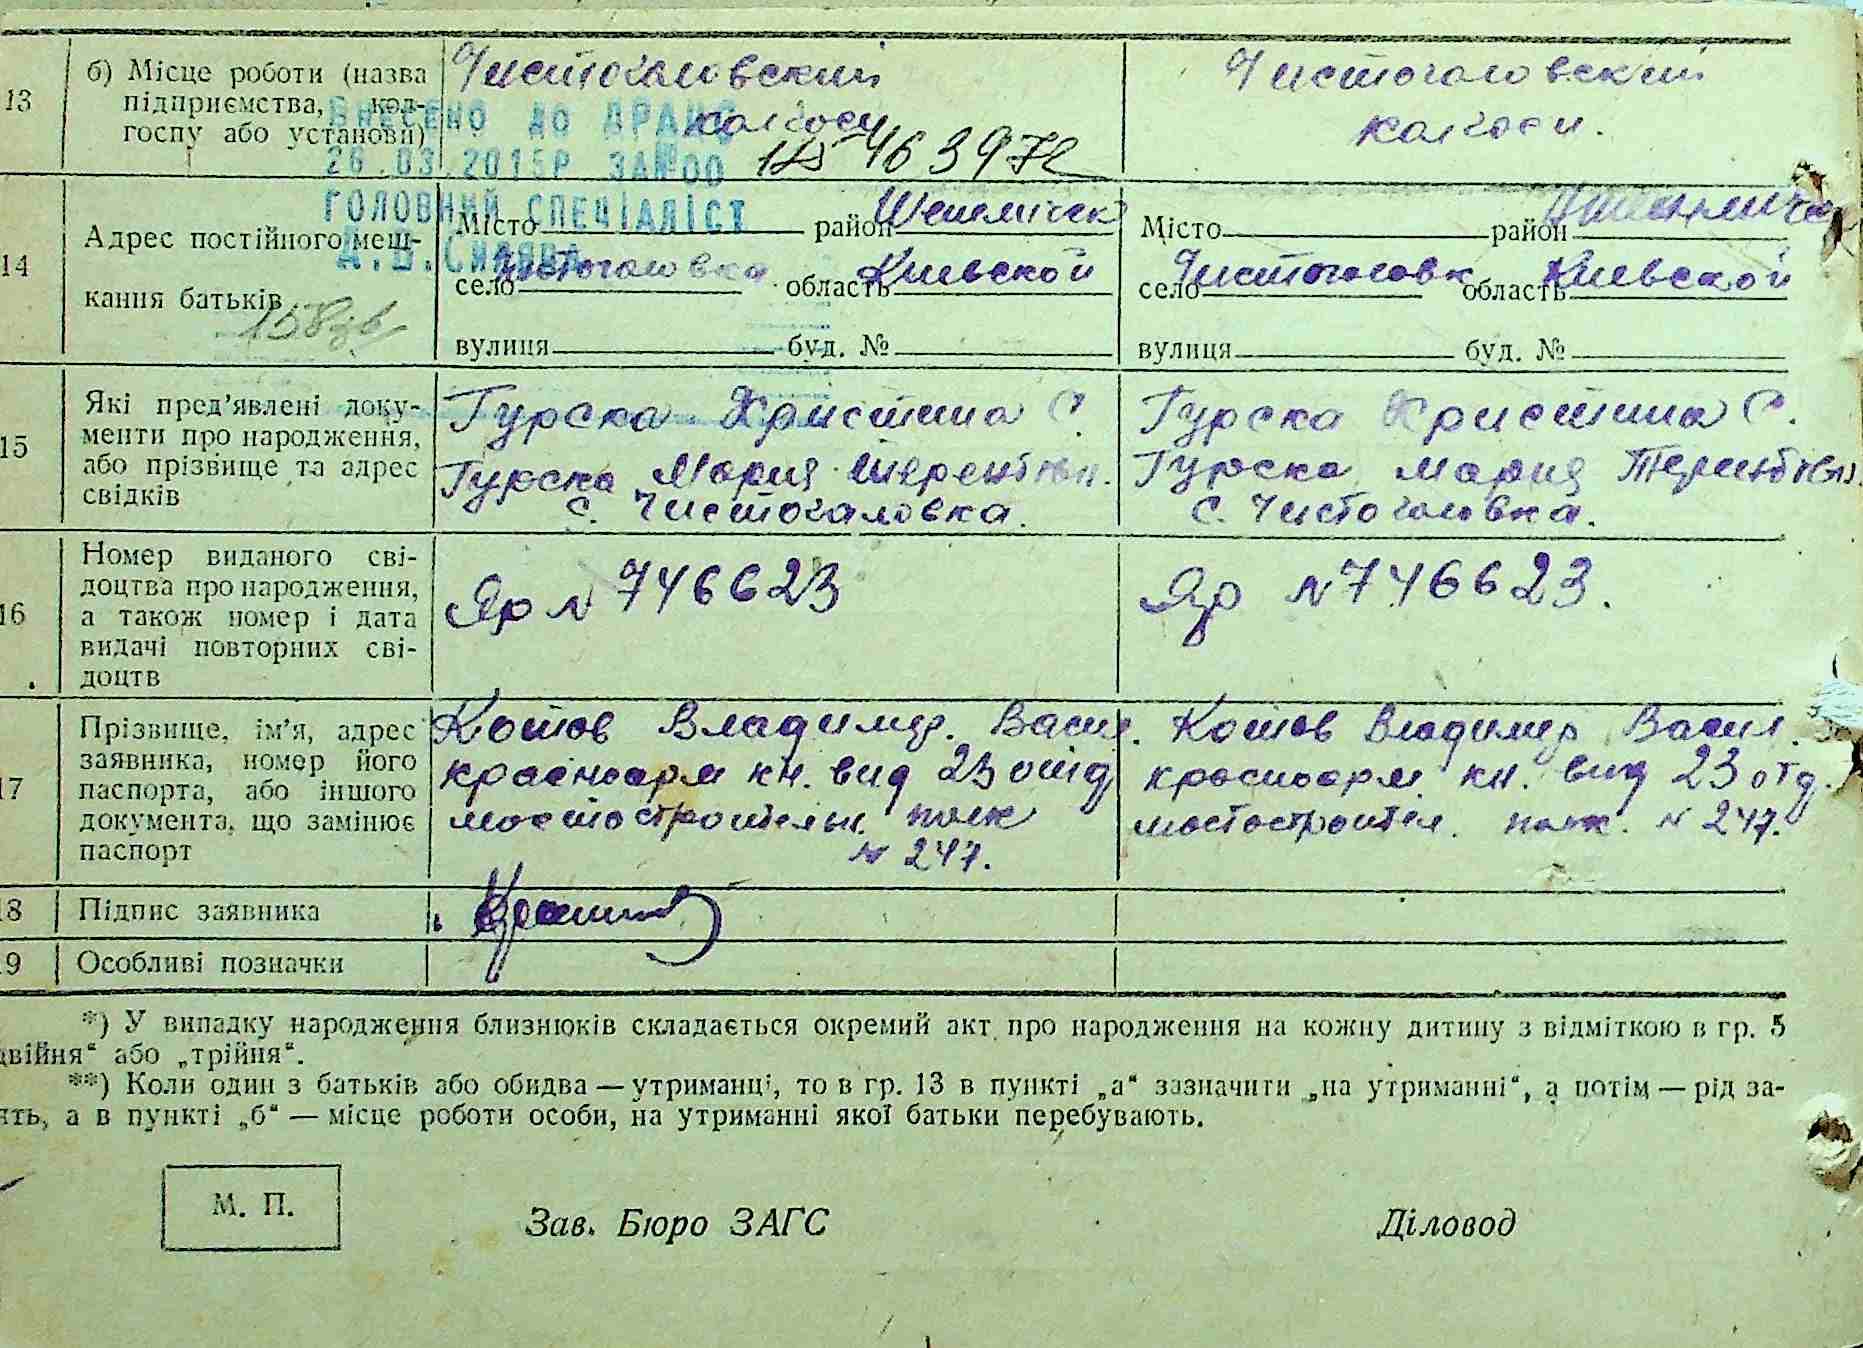 13
б) Місце роботи (назва
підприємства, кол-
госпу або установи)
Чистогаловский
колгосп
Чистогаловский
колгосп.
ВНЕСЕНО ДО ДРАЦС
26.03.2015Р ЗА№00
463972
ГОЛОВНИЙ СПЕЦІАЛІСТ
14
Адрес постійного меш-
кання батьків
Місто район
село Чистогаловка область Киевской
вулиця буд. №
Місто район
село Чистогаловк область Киевской
вулиця буд. №
15
Які пред’явлені доку-
менти про народження,
або прізвище та адрес
свідків
Гурска Христина С.
Гурска Мария
с. Чистогаловка.
Гурска Христина С.
Гурска Мария
с. Чистогаловка.
16
Номер виданого сві-
доцтва про народження,
а також номер і дата
видачі повторних сві-
доцтв
Яр N 746623
Яр N 746623.
17
Прізвище, ім’я, адрес
заявника, номер його
паспорта, або іншого
документа, що замінює
паспорт
Котов Владимир. Васил.
красноарм кн. вид 23 отд
мостостроительн. полк
N 247.
Котов Владимир Васил.
красноарм. кн. вид 23 отд.
мостостроител. полк. N 247.
18
Підпис заявника
19
Особливі позначки
*) У випадку народження близнюків складається окремий акт про народження на кожну дитину з відміткою в гр. 5
двійня“ або „трійня“.
**) Коли один з батьків або обидва — утриманці, то в гр. 13 в пункті „а“ зазначити „на утриманні“, а потім — рід за-
ять, а в пункті „б“ — місце роботи особи, на утриманні якої батьки перебувають.
М. П.
Зав. Бюро ЗАГС
Діловод